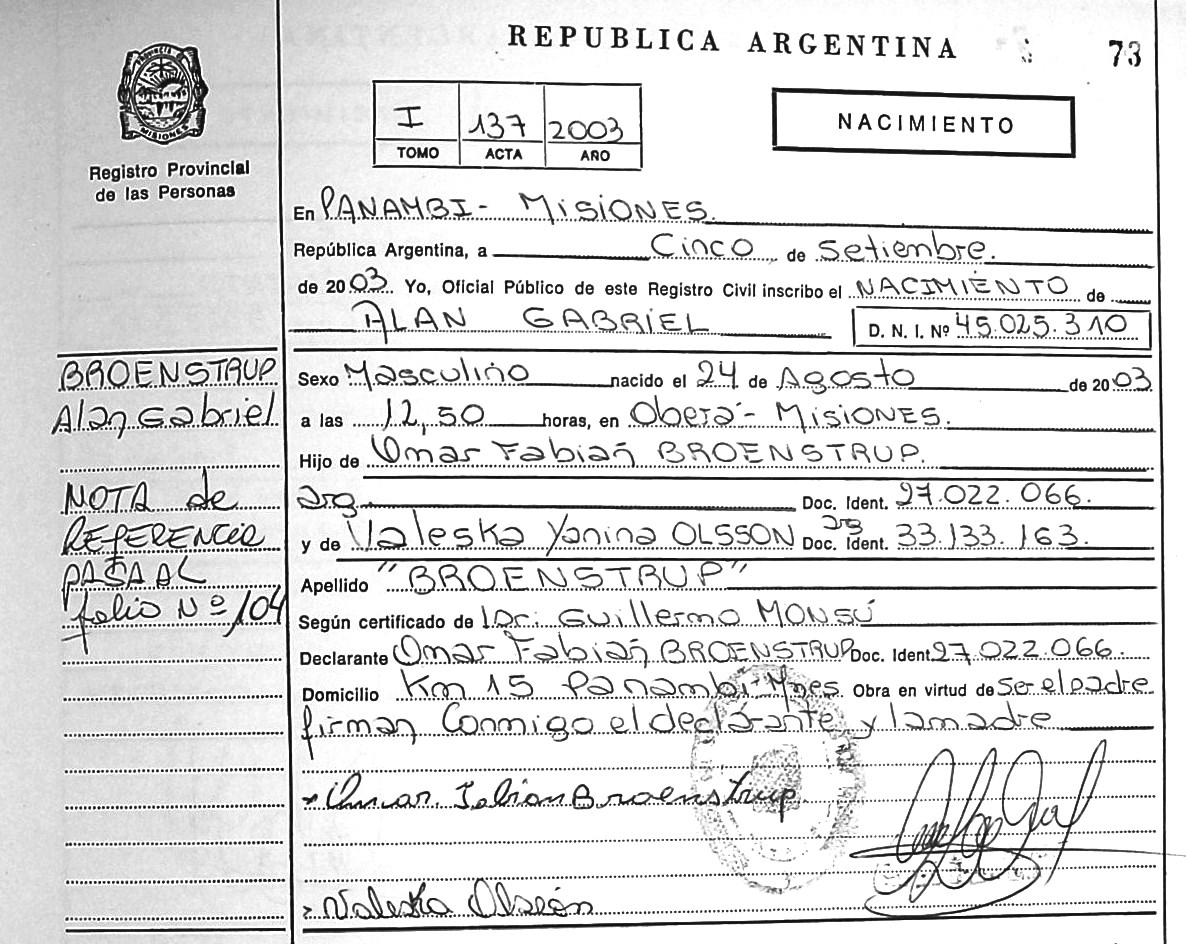 REPUBLICA ARGENTINA
73
MISIONES
Registro Provincial
de las Personas
I 137 2003
TOMO ACTA AÑO
NACIMIENTO
En PANAMBI - MISIONES.
República Argentina, a Cinco de Setiembre.
de 2003. Yo, Oficial Público de este Registro Civil inscribo el NACIMIENTO de
ALAN GABRIEL D. N. I. Nº 45.025.310
BROENSTRUP
Alan Gabriel
NOTA de
REFERENCIA
PASA AL
folio Nº 104
Sexo Masculino nacido el 24 de Agosto de 2003
a las 12,50 horas, en Oberá - MISIONES.
Hijo de Omar Fabián BROENSTRUP.
arg. Doc. Ident. 27.022.066.
y de Valeska Yanina OLSSON arg Doc. Ident. 33.133.163.
Apellido "BROENSTRUP"
Según certificado de Dr. Guillermo MONSÚ
Declarante Omar Fabián BROENSTRUP Doc. Ident. 27.022.066.
Domicilio Km 15 Panambi - Mnes. Obra en virtud de Ser el padre
firman Conmigo el declarante y la madre
Omar Fabian Broenstrup
Valeska Olsson